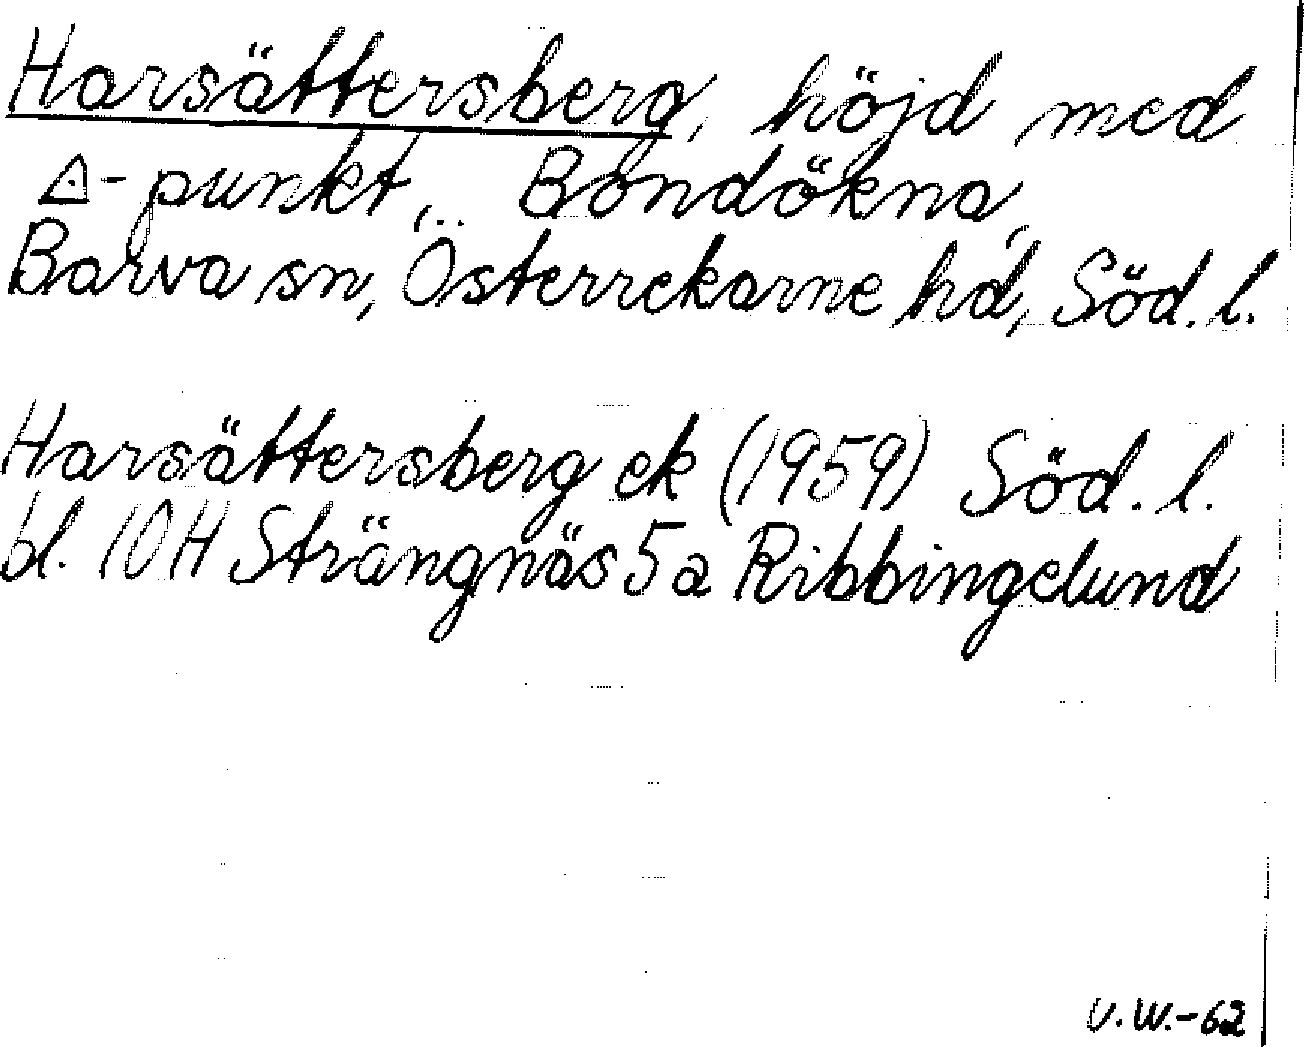 Harsättersberg, höjd med
△-punkt, Bondökna,
Barva sn, Österrekarne hd, Söd. l.
Harsättersberg ek (1959) Söd. l.
bl. 10H Strängnäs 5a Ribbingelund
V.W.-62